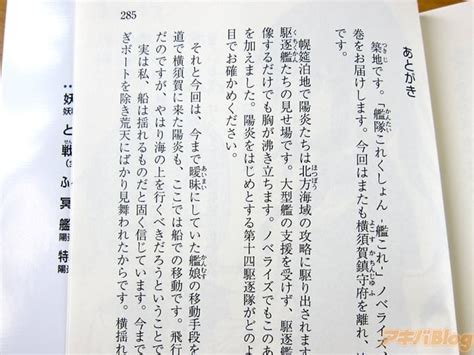 あとがき
築地です。『艦隊これくしょん -艦これ-』ノベライズ、
巻をお届けします。今回はまたも横須賀鎮守府を離れ、
です。
幌筵泊地で陽炎たちは北方海域の攻略に駆り出されます
駆逐艦たちの見せ場です。大型艦の支援を受けず、駆逐艦
像するだけでも胸が沸き立ちます。ノベライズでもこのあ
を加えました。陽炎をはじめとする第十四駆逐隊がどのよ
目でお確かめください。
それと今回は、今まで曖昧にしていた艦娘の移動手段を
道で横須賀に来た陽炎も、ここでは船での移動です。飛行
だのですが、やはり海の上を行くべきだろうということで
実は私、船は揺れるものだと固く信じています。今まで
ぎボートを除き荒天にばかり見舞われたからです。横揺れ
285
アキバBlog